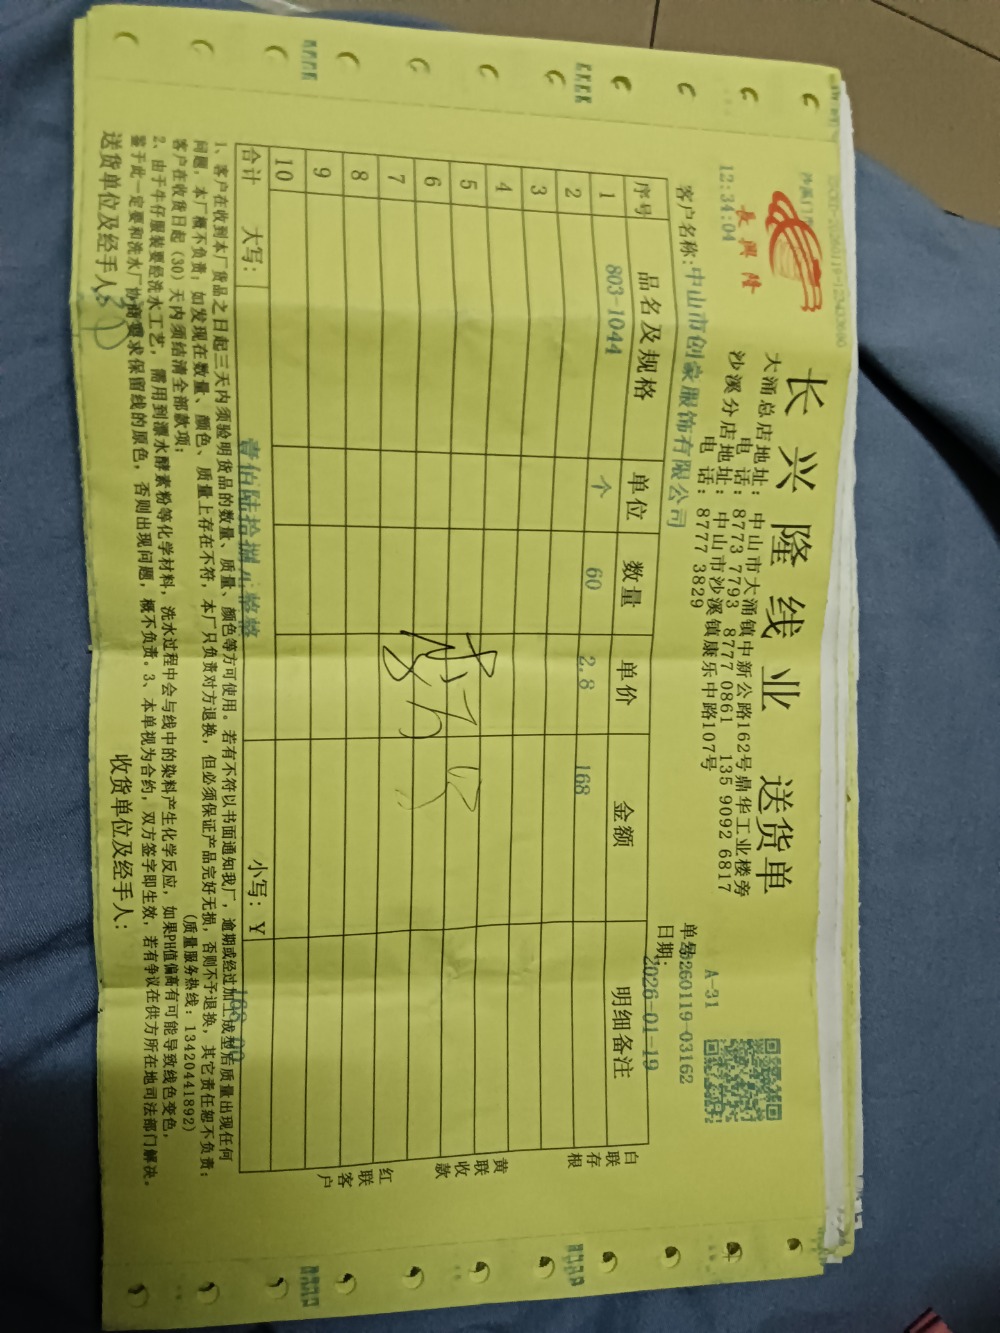 長興隆
长兴隆线业 送货单
大涌总店地址：中山市大涌镇中新公路162号鼎华工业楼旁
电 话：8773 7793 8777 0861 135 9092 6817
沙溪分店地址：中山市沙溪镇康乐中路107号
电 话：8777 3829
12:34:04
A-31
客户名称：中山市创家服饰有限公司
单号：260119-03162
日期：2026-01-19
序号 品名及规格 单位 数量 单价 金额 明细备注
1 803-1044 个 60 2.8 168
2
3
4
5
6
7
8
9
10
合计 大写： 壹佰陆拾捌元整 小写：￥ 168.00
白联存根
黄联收款
红联客户
1、客户在收到本厂货品之日起三天内须验明货品的数量、质量、颜色等方可使用。若有不符以书面通知我厂，逾期或经过加工成型后质量出现任何
问题，本厂概不负责；如发现在数量、颜色、质量上存在不符，本厂只负责对方退换，但必须保证产品完好无损，否则不予退换，其它责任恕不负责；
客户在收货日起（30）天内须结清全部款项；
（质量服务热线：13420441892）
2、由于牛仔服装要经洗水工艺，需用到漂水酵素粉等化学材料，洗水过程中会与线中的染料产生化学反应，如果PH值偏高有可能导致线色变色，
鉴于此一定要和洗水厂协商要求保留线的原色，否则出现问题，概不负责。3、本单视为合约，双方签字即生效，若有争议在供方所在地司法部门解决。
送货单位及经手人：
收货单位及经手人：